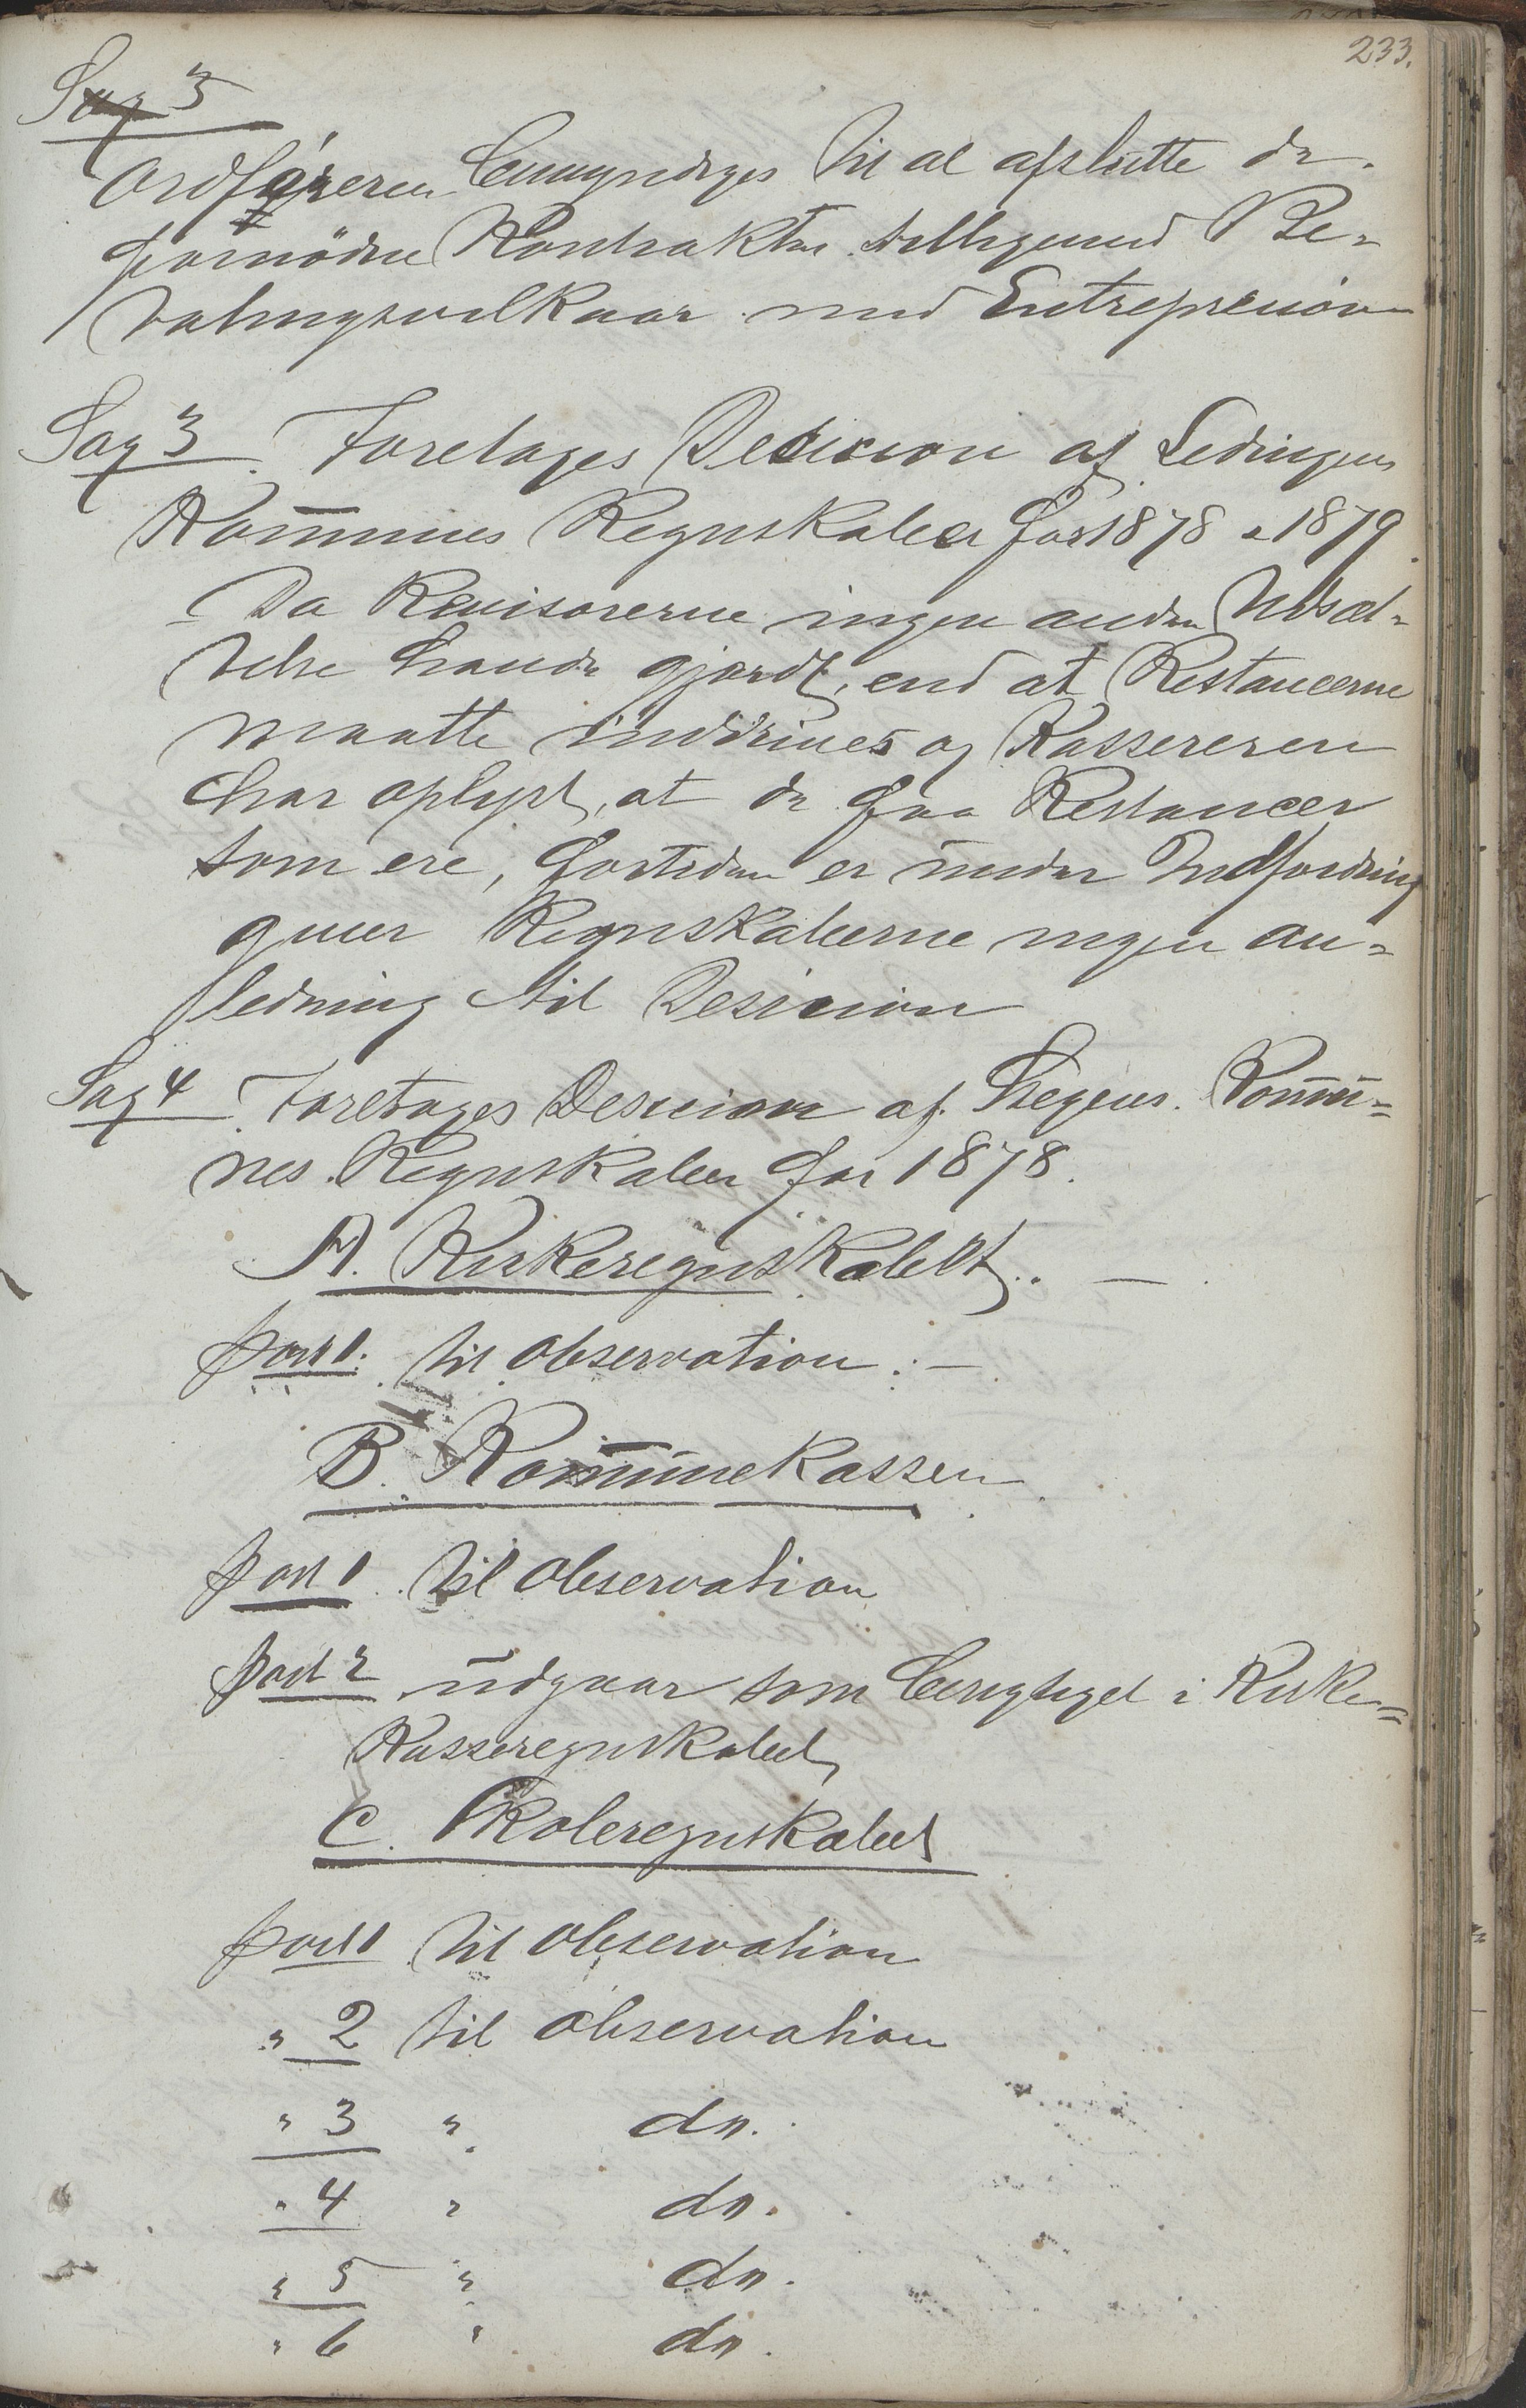 233.
Sag 3
Ordføreren bemyndiges til at afslutte de
fornødne Kontrakter tilligemed Be-
talingsvilkaar med Entreprenören
Sag 3. Foretages Decision af Ledingens
Kommunes Regnskaber for 1878 & 1879.
Da Revisorerne ingen anden Udsæt-
telse havde gjordt, end at Restancerne
maatte inddrives og Kassereren
har oplyst, at de faa Restancer
som ere, fortiden er under Indfordring
giver Regnskaberne ingen an-
ledning til Desicion
Sag 4. Foretages Desicion af Stegens Kommu-
nes Regnskaber for 1878.
A. Kirkeregnskabet. —
post 1. til Observation. —
B. Kommunekassen
post 1. til Observation
post 2 udgaar som berigtiget i Kirke-
Kasseregnskabet,
C. Skoleregnskabet
post 1 til Observation
" 2 til Observation
" 3 " do.
" 4 " do.
" 5 " do.
" 6 " do.